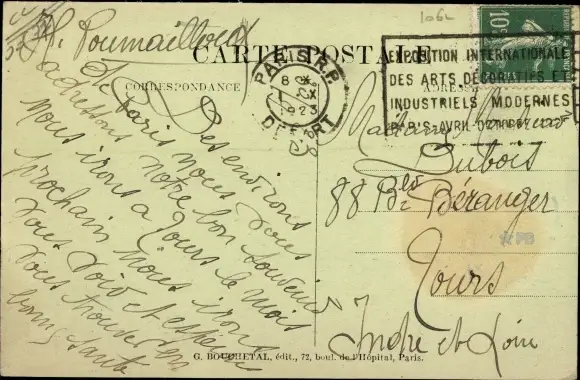 1062
P. Poumailloux
CARTE POSTALE
CORRESPONDANCE
ADRESSE
10c
PARIS R.P.
8 X
1923
DEPART
EXPOSITION INTERNATIONALE
DES ARTS DÉCORATIFS ET
INDUSTRIELS MODERNES
PARIS-AVRIL-OCTOBRE
Des environs
de Paris nous vous
adressons notre bon souvenir
nous irons a Tours le mois
prochain nous irons
vous voir et espérons
vous trouver en
bonne santé
Madame
Dubois
88 Bd Béranger
Tours
Indre et Loire
G. BOUCHETAL, édit., 72, boul. de l'Hôpital, Paris.